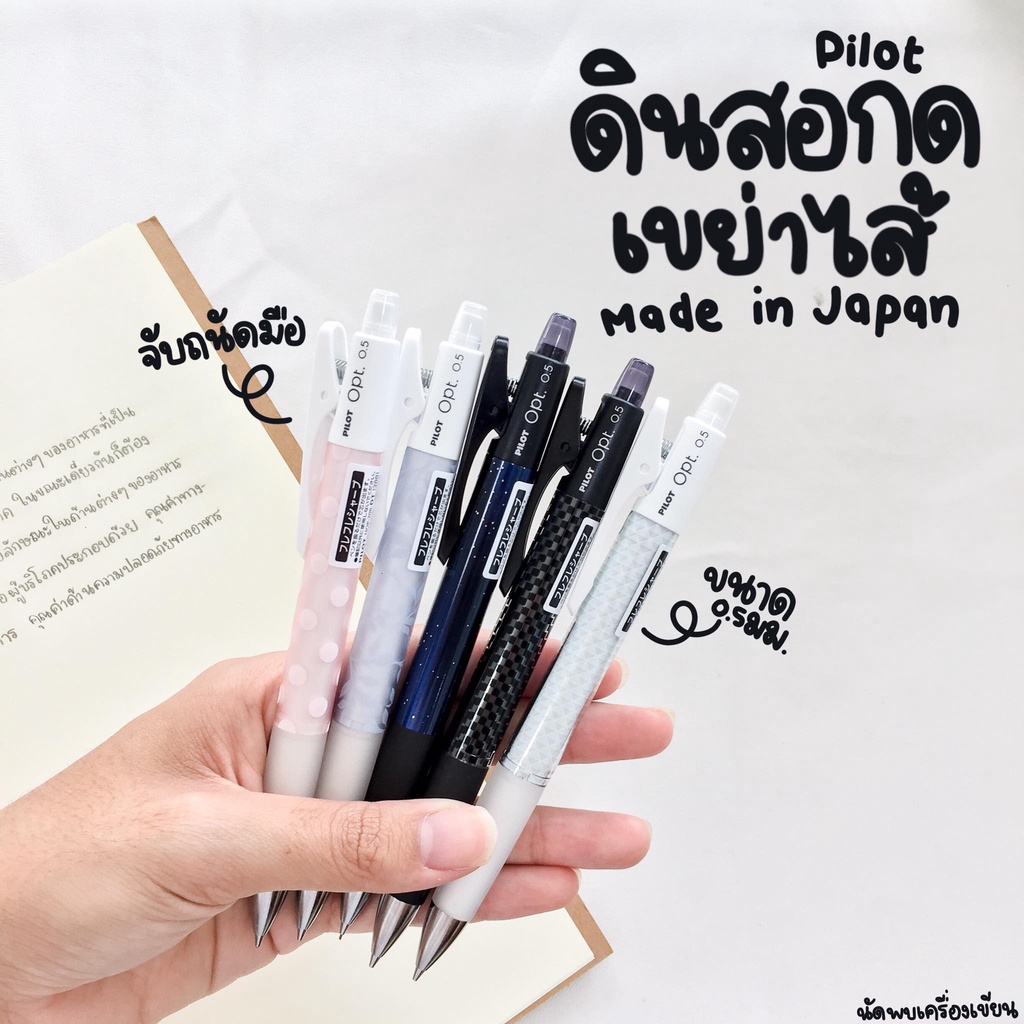 Pilot
ดินสอกด
เขย่าไส้
made in Japan
จับถนัดมือ
PILOT Opt. 0.5
PILOT Opt. 0.5
PILOT Opt. 0.5
PILOT Opt. 0.5
PILOT Opt. 0.5
フレフレシャープ
フレフレシャープ
フレフレシャープ
フレフレシャープ
フレフレシャープ
ขนาด
0.5มม.
ของอาหารที่เป็น
ในขณะเดียวกันก็ต้อง
ลักษณะในด้านต่างๆ ของอาหาร
ผู้บริโภคประกอบด้วย คุณค่าทาง-
คุณค่าด้านความปลอดภัยทางอาหาร
นัดพบเครื่องเขียน